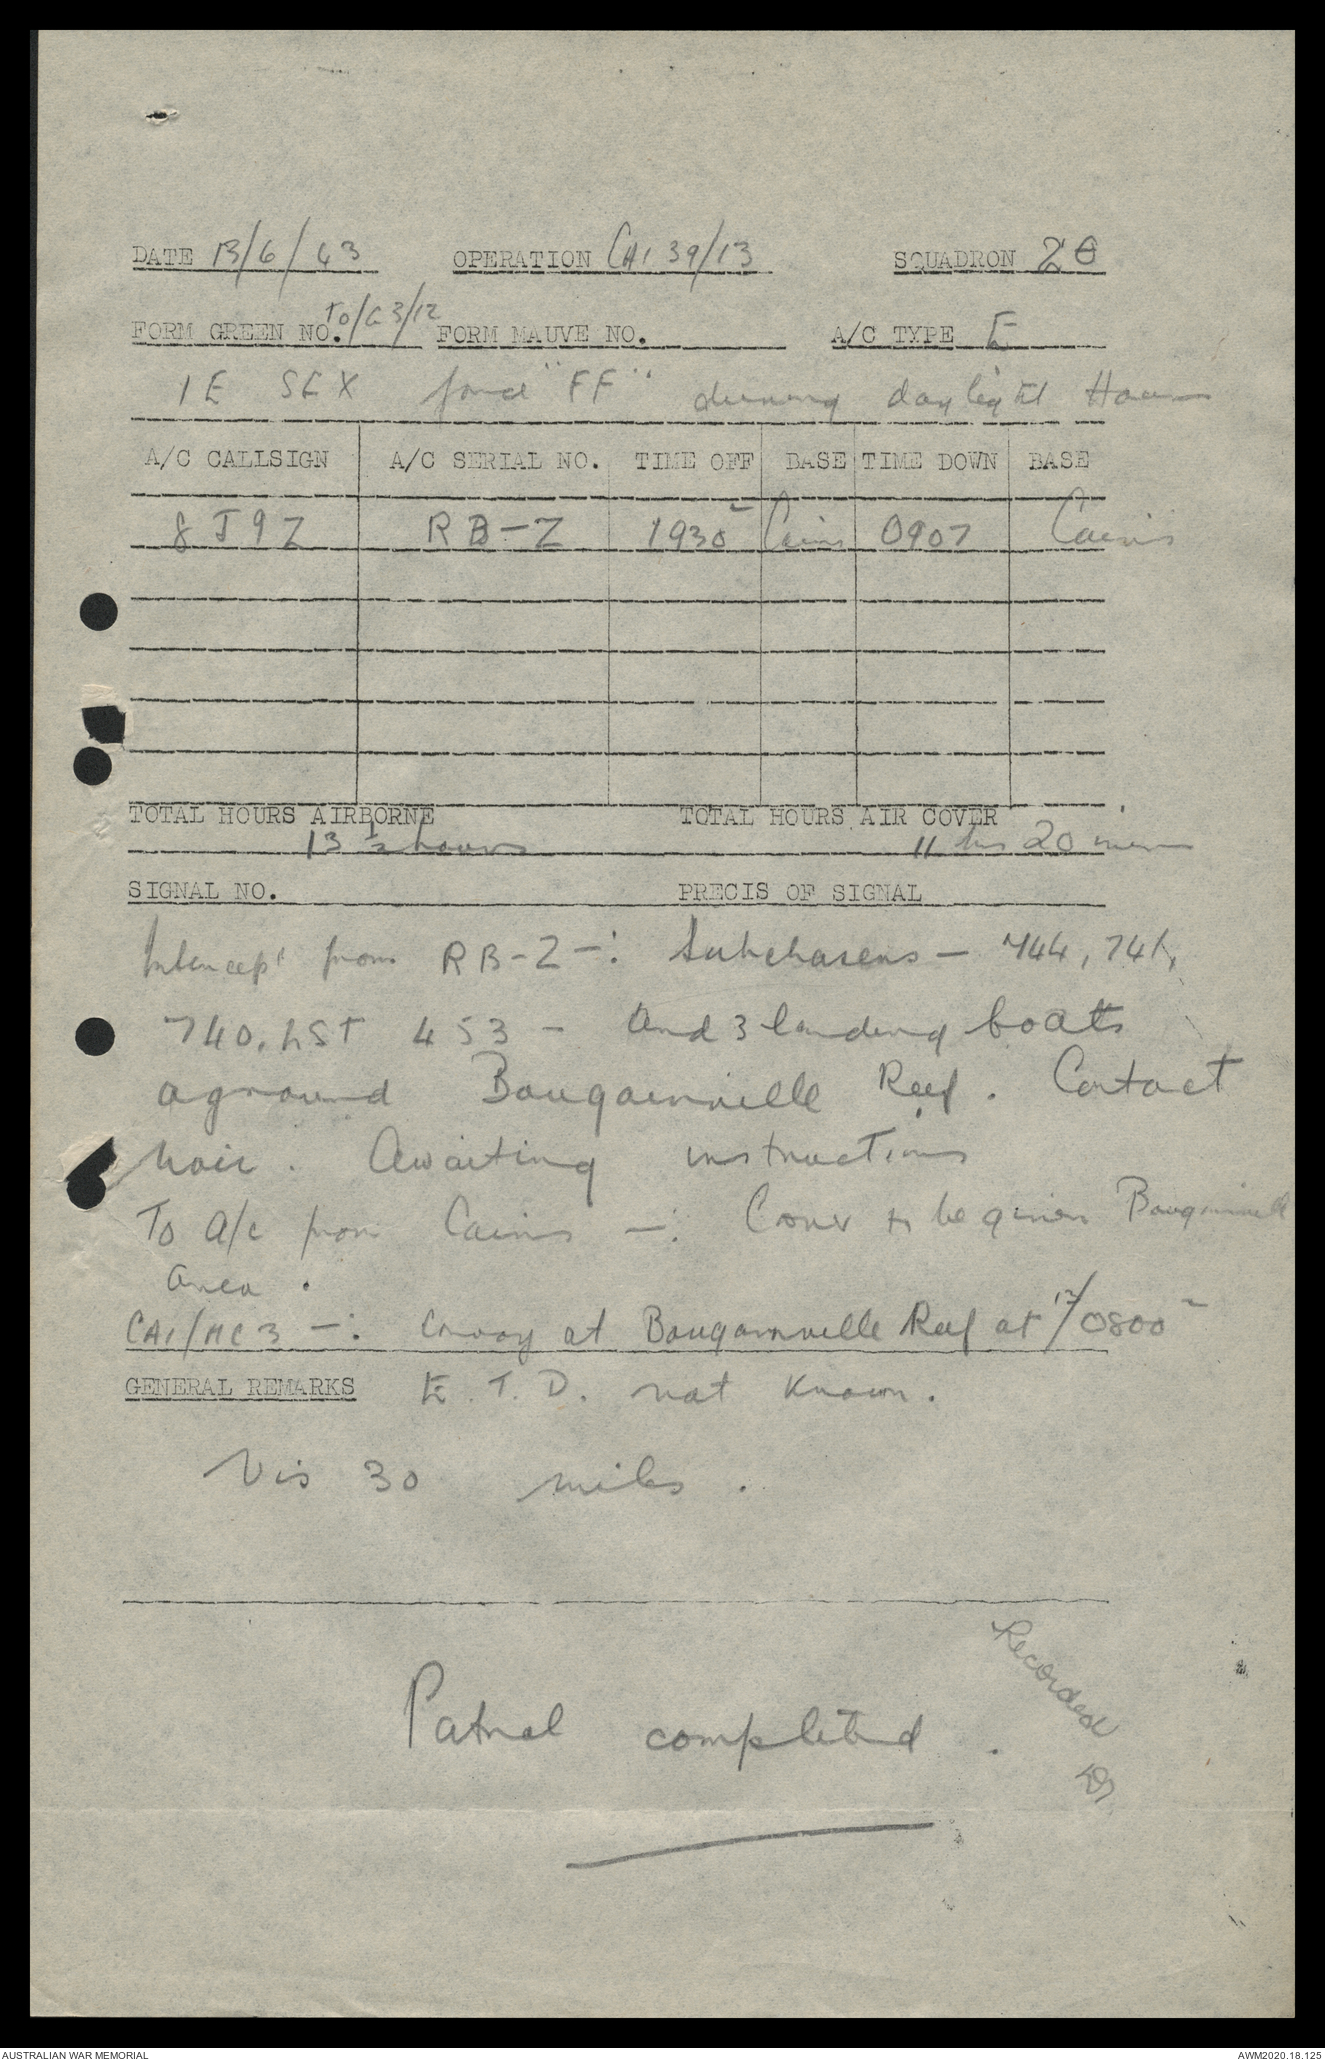 DATE 13/6/43 OPERATION CAI 39/13 SQUADRON 20
FORM GREEN NO. TO/G3/12 FORM MAUVE NO. A/C TYPE E
1E SEX force "FF" during daylight Hours
A/C CALLSIGN A/C SERIAL NO. TIME OFF BASE TIME DOWN BASE
8J9Z RB-Z 1930Z Cairns 0907 Cairns
TOTAL HOURS AIRBORNE TOTAL HOURS AIR COVER
13½ hours 11 hrs 20 mins
SIGNAL NO. PRECIS OF SIGNAL
Intercept from RB-Z -: Subchasers - 744, 741,
740. LST 453 - and 3 landing boats
aground Bougainville Reef. Contact
made. Awaiting instructions
To a/c from Cairns -: Cover to be given Bougainville
area.
CAI/MC3 -: Convoy at Bougainville Reef at 12/0800Z
GENERAL REMARKS E.T.D. not known.
Vis 30 miles.
Recorded
Patrol completed.
AUSTRALIAN WAR MEMORIAL AWM2020.18.125